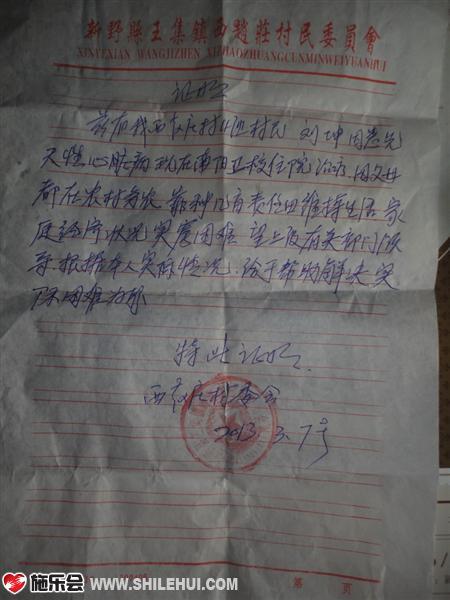 新野縣王集鎮西趙莊村民委員會
XINYEXIAN WANGJIZHEN XIZHAOZHUANGCUNMINWEIYUANHUI
证明
兹有我西赵庄村 村民 刘坤 因患先
天性心脏病 现在南阳 校住院治疗 因父母
都在农村务农 靠种几亩责任田维持生活 家
庭经济状况实属困难 望上级有关部门领
导 根据本人实际情况 给予帮助解决实
际困难为盼
特此证明
西赵庄村委会
2013. 3. 7号
第 页
施乐会 WWW.SHILEHUI.COM